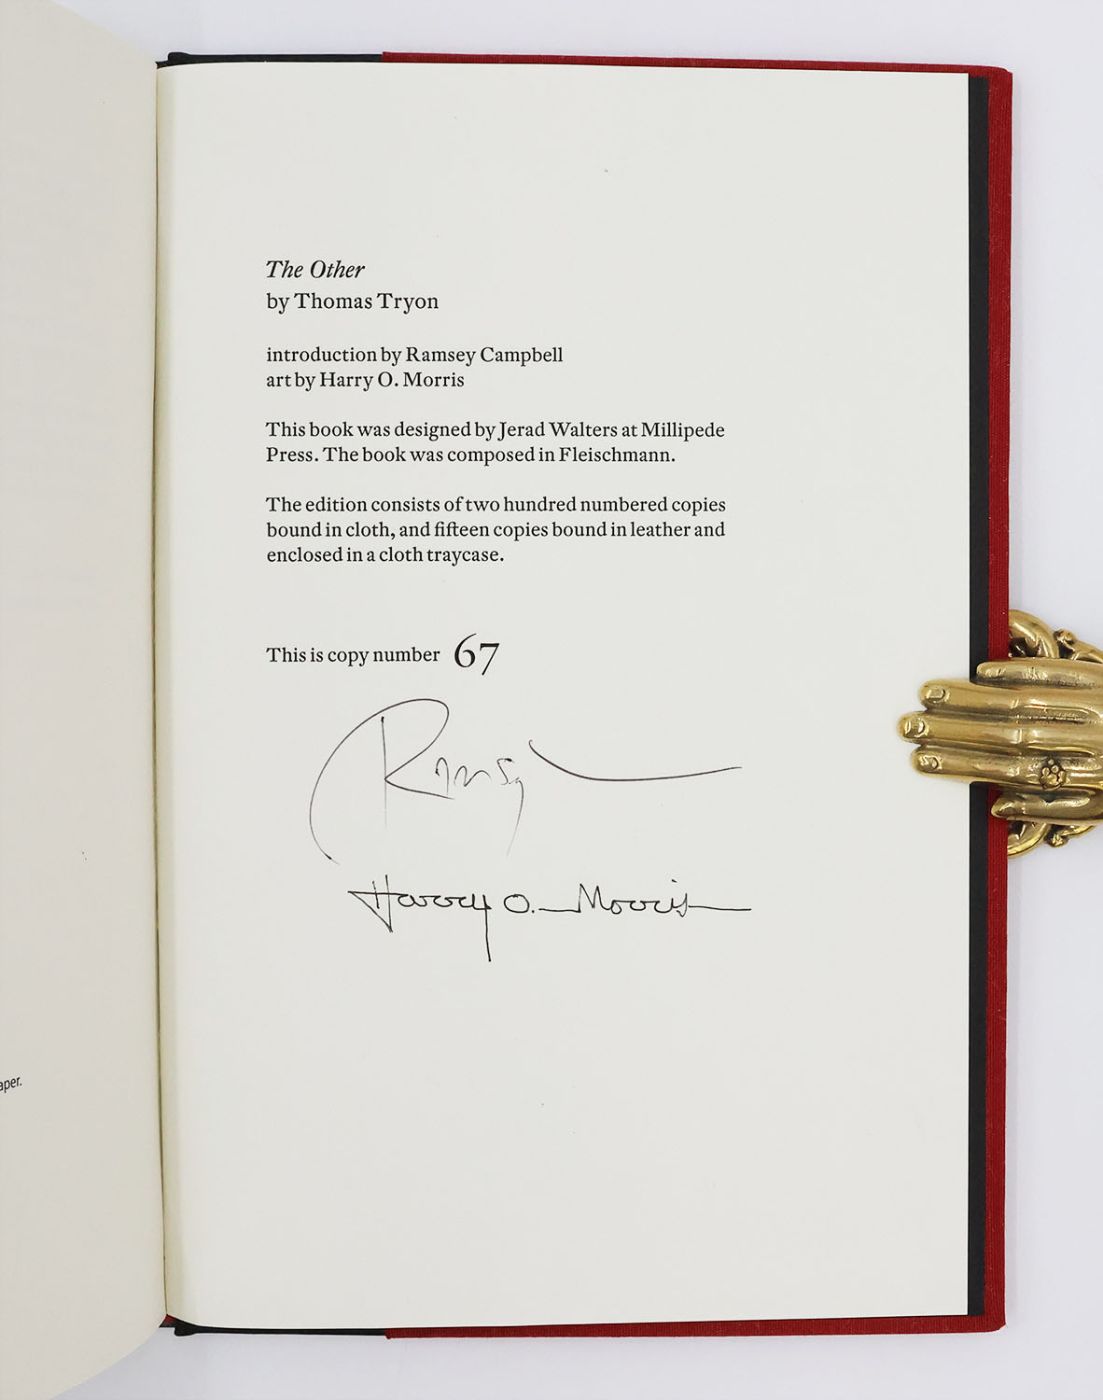 The Other
by Thomas Tryon
introduction by Ramsey Campbell
art by Harry O. Morris
This book was designed by Jerad Walters at Millipede
Press. The book was composed in Fleischmann.
The edition consists of two hundred numbered copies
bound in cloth, and fifteen copies bound in leather and
enclosed in a cloth traycase.
This is copy number 67
Ramsey
Harry O. Morris
aper.